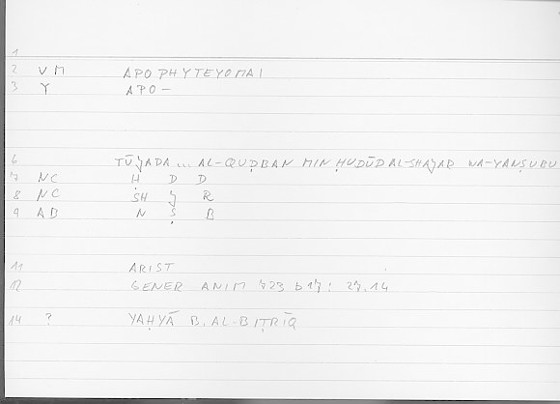 1
2 VM APOPHYTEYOMAI
3 Y APO-
6 TŪJADA ... AL-QUḌBAN MIN ḤUDŪD AL-SHAJAR WA-YANṢUBU
7 NC Ḥ D D
8 NC SH J R
9 AB N Ṣ B
11 ARIST
12 GENER ANIM 723 b17: 27.14
14 ? YAḤYĀ B. AL-BIṬRĪQ